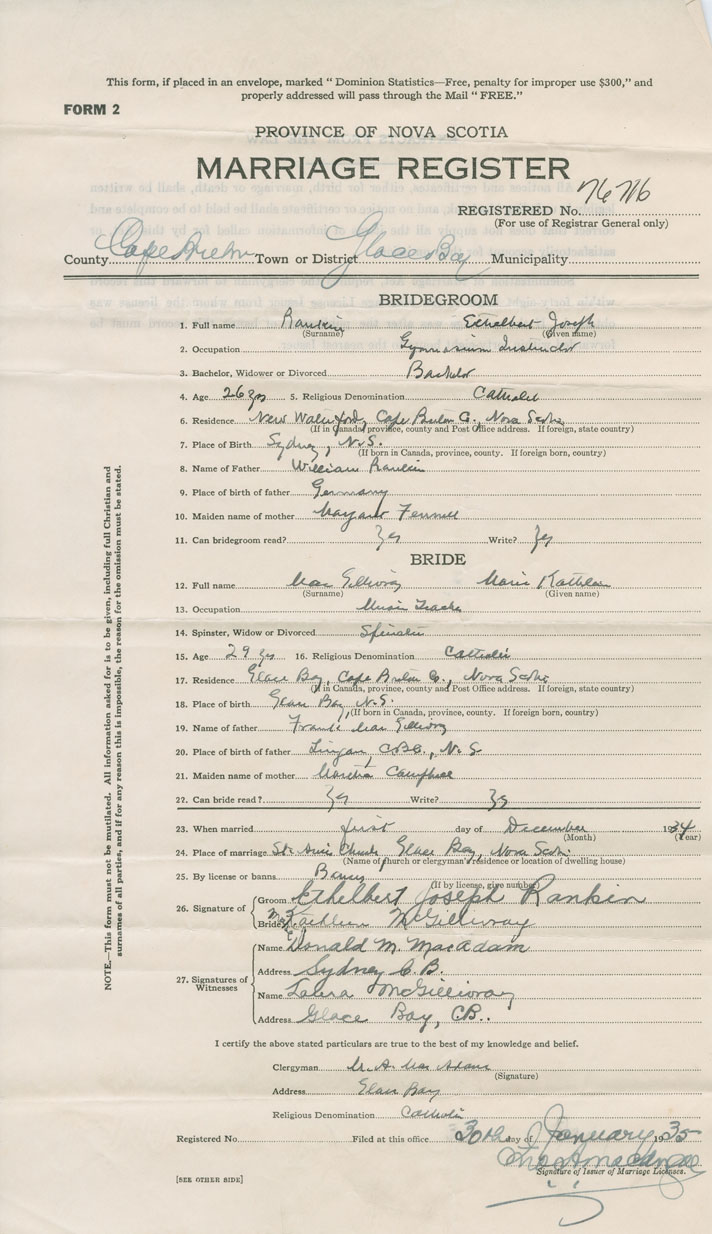 This form, if placed in an envelope, marked “ Dominion Statistics—Free, penalty for improper use $300,” and
properly addressed will pass through the Mail “ FREE.”
FORM 2
PROVINCE OF NOVA SCOTIA
MARRIAGE REGISTER
REGISTERED No.
(For use of Registrar General only)
County Cape Breton Town or District Glace Bay Municipality
BRIDEGROOM
1. Full name Rankin Ethelbert Joseph
(Surname) (Given name)
2. Occupation Gymnasium Instructor
3. Bachelor, Widower or Divorced Bachelor
4. Age 26 yrs 5. Religious Denomination Catholic
6. Residence New Waterford, Cape Breton Co., Nova Scotia
(If in Canada, province, county and Post Office address. If foreign, state country)
7. Place of Birth Sydney, N.S.
(If born in Canada, province, county. If foreign born, country)
8. Name of Father William Rankin
9. Place of birth of father Germany
10. Maiden name of mother Margaret Fennell
11. Can bridegroom read? Yes Write? Yes
BRIDE
12. Full name MacGillivray Marie Kathleen
(Surname) (Given name)
13. Occupation Music Teacher
14. Spinster, Widow or Divorced Spinster
15. Age 29 yrs 16. Religious Denomination Catholic
17. Residence Glace Bay, Cape Breton Co., Nova Scotia
(If in Canada, province, county and Post Office address. If foreign, state country)
18. Place of birth Glace Bay, N.S.
(If born in Canada, province, county. If foreign born, country)
19. Name of father Frank MacGillivray
20. Place of birth of father Lingan C.B.Co., N.S.
21. Maiden name of mother Martha Campbell
22. Can bride read? Yes Write? Yes
23. When married first day of December 1934
(Month) (Year)
24. Place of marriage St. Ann's Church Glace Bay, Nova Scotia
(Name of church or clergyman's residence or location of dwelling house)
25. By license or banns Banns
(If by license, give number)
26. Signature of
Groom Ethelbert Joseph Rankin
Bride Kathleen McGillivray
27. Signatures of Witnesses
Name Donald M. MacAdam
Address Sydney C.B.
Name McGillivray
Address Glace Bay, C.B.
I certify the above stated particulars are true to the best of my knowledge and belief.
Clergyman M. A. MacAdam
(Signature)
Address Glace Bay
Religious Denomination Catholic
Registered No. Filed at this office 30th day of January 1935
Signature of Issuer of Marriage Licenses.
[SEE OTHER SIDE]
NOTE.—This form must not be mutilated. All information asked for is to be given, including full Christian and
surnames of all parties, and if for any reason this is impossible, the reason for the omission must be stated.